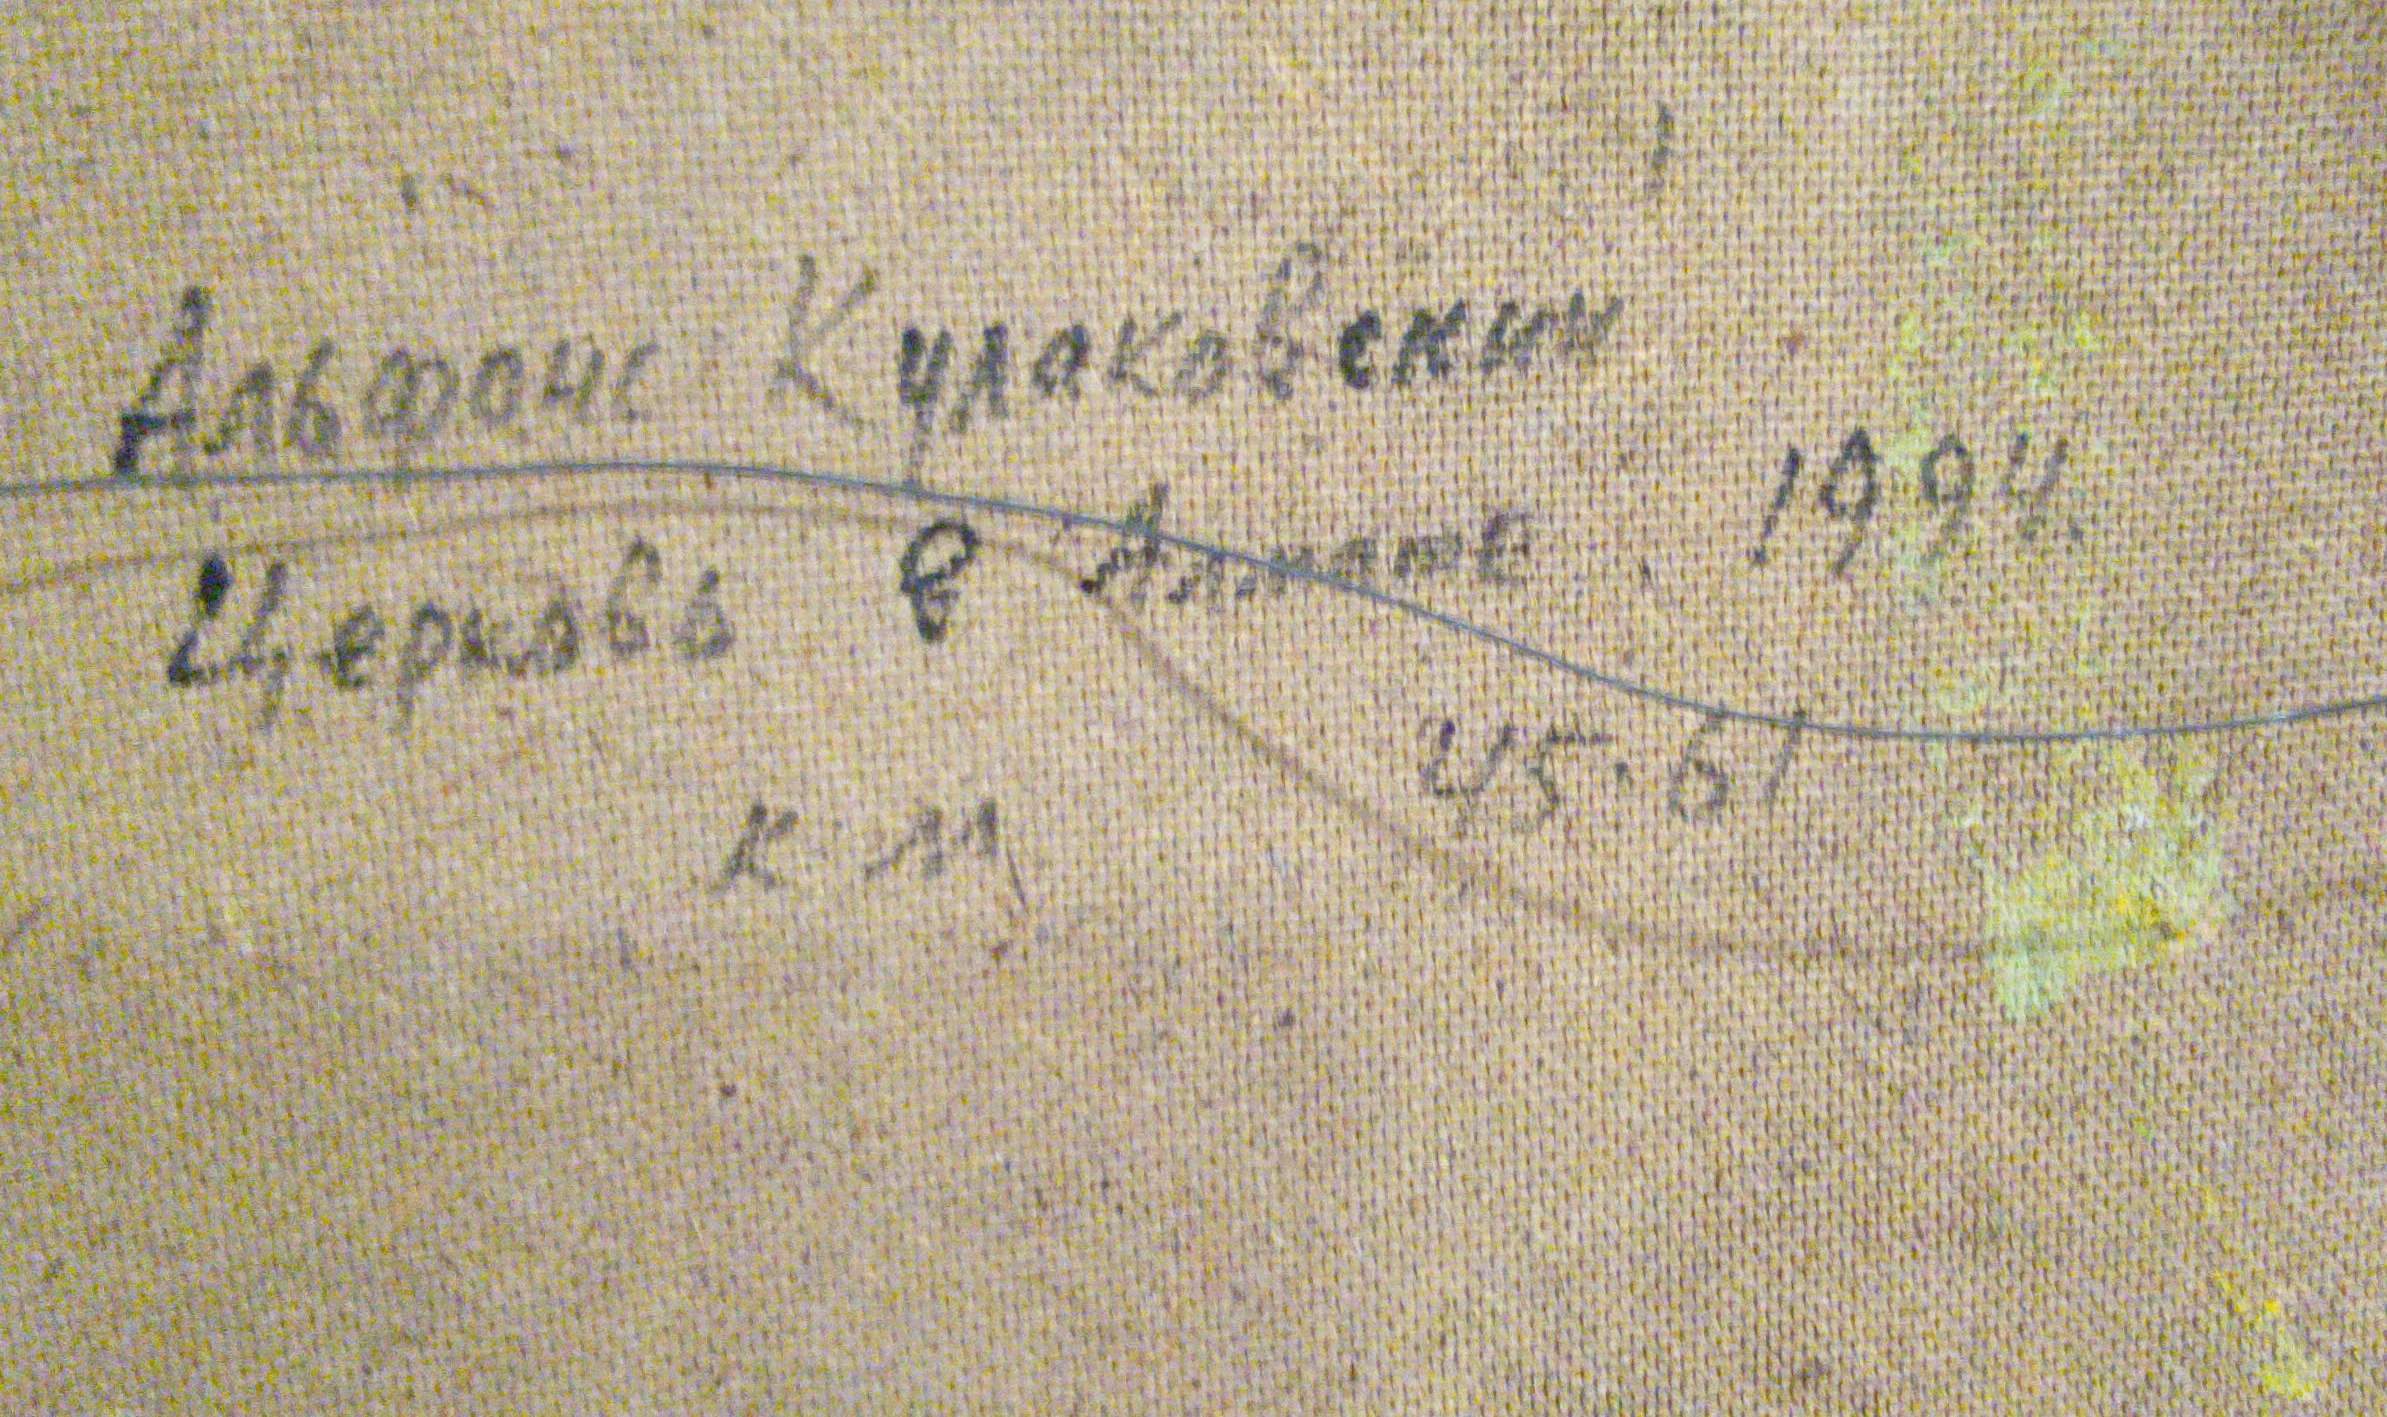 Альфонс Кулаковский
Церковь в Алмапе. 1994.
45.61
к м